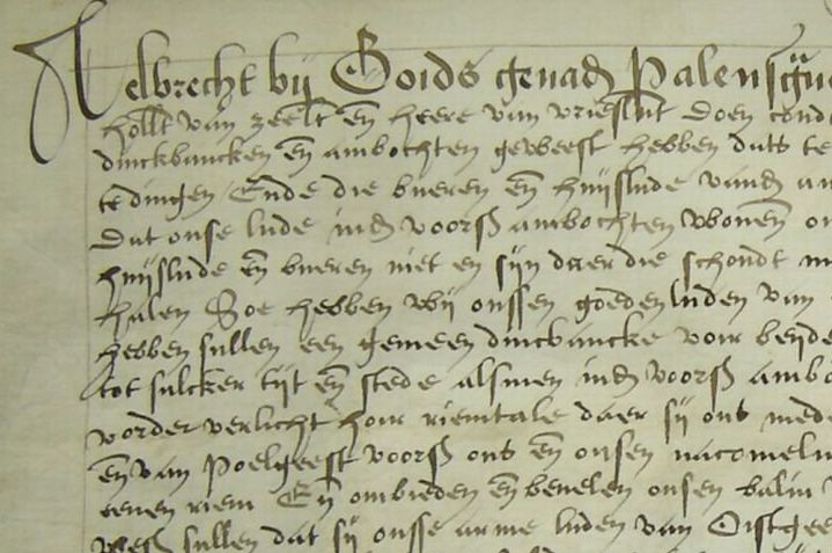 Aelbrecht bij Goids genad Palensgr
Hollt van zeelt en heere van vrieslnt doen cond
dinckbancken en ambochten geweest hebben dats te
tedingen Ende die bueren en huijslude vand am
Dat onse lude ind voors ambochten wonen on
huijslude en bueren niet en sijn daer die schoudt m
halen Soe hebben wij onssen goeden luden van
hebben sullen een gemeen dincbancke voir beijde
tot sulcker tijt en stede alsmen ind voors ambo
vorder verlicht hoir riemtale daer sij ons mede
en van Poelgeest voors ons en onsen nacomelin
eenen riem En ombieden en bevelen onsen baliu
sullen dat sij onsse arme luden van Oistgee